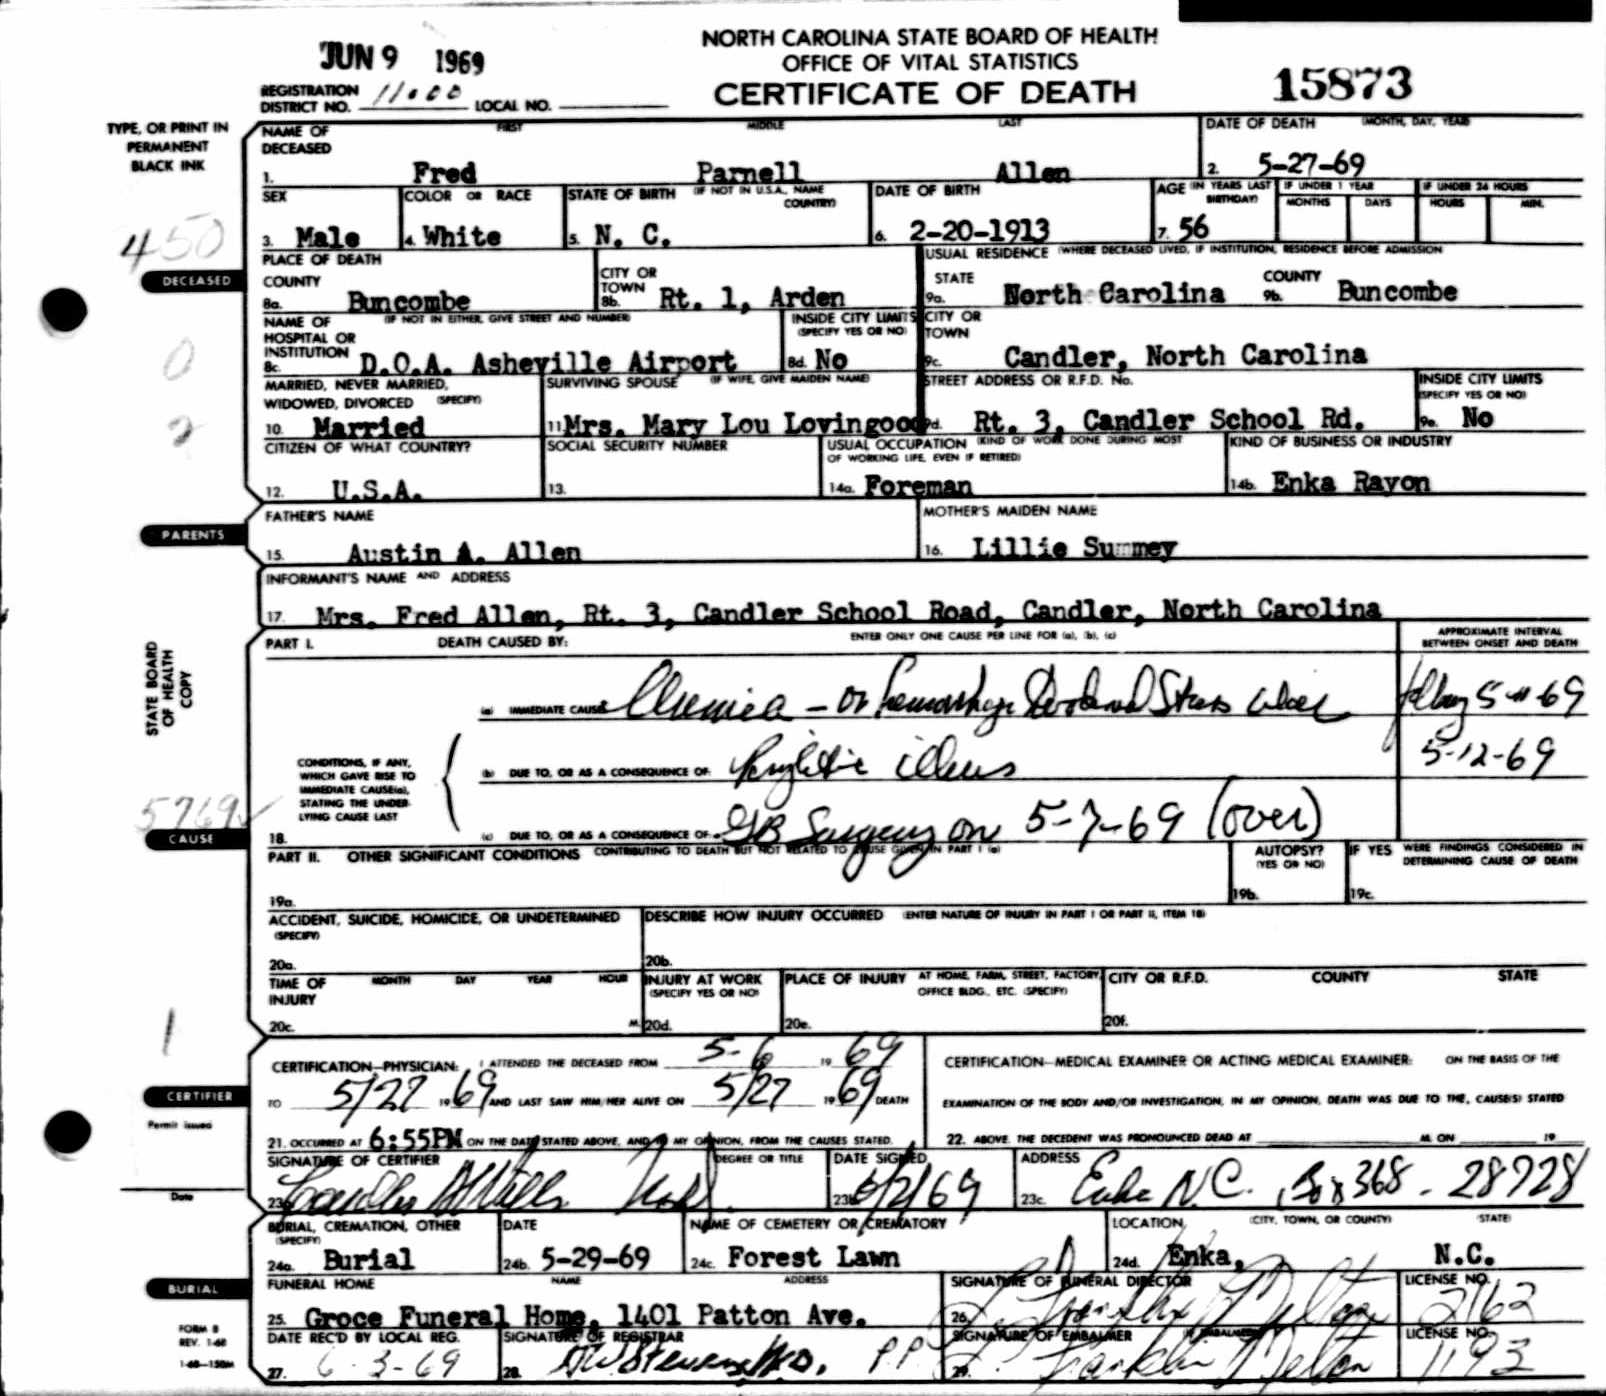 JUN 9 1969
NORTH CAROLINA STATE BOARD OF HEALTH
OFFICE OF VITAL STATISTICS
CERTIFICATE OF DEATH
15873
REGISTRATION DISTRICT NO. 11.00 LOCAL NO.
TYPE, OR PRINT IN PERMANENT BLACK INK
NAME OF DECEASED FIRST MIDDLE LAST DATE OF DEATH (MONTH, DAY, YEAR)
1. Fred Parnell Allen 2. 5-27-69
SEX COLOR OR RACE STATE OF BIRTH (IF NOT IN U.S.A., NAME COUNTRY) DATE OF BIRTH AGE (IN YEARS LAST BIRTHDAY) IF UNDER 1 YEAR MONTHS DAYS IF UNDER 24 HOURS HOURS MIN.
450
3. Male 4. White 5. N. C. 6. 2-20-1913 7. 56
DECEASED
PLACE OF DEATH USUAL RESIDENCE (WHERE DECEASED LIVED, IF INSTITUTION, RESIDENCE BEFORE ADMISSION
COUNTY CITY OR TOWN STATE COUNTY
8a. Buncombe 8b. Rt. 1, Arden 9a. North Carolina 9b. Buncombe
NAME OF HOSPITAL OR INSTITUTION (IF NOT IN EITHER, GIVE STREET AND NUMBER) INSIDE CITY LIMITS (SPECIFY YES OR NO) CITY OR TOWN
0
8c. D.O.A. Asheville Airport 8d. No 9c. Candler, North Carolina
MARRIED, NEVER MARRIED, WIDOWED, DIVORCED (SPECIFY) SURVIVING SPOUSE (IF WIFE, GIVE MAIDEN NAME) STREET ADDRESS OR R.F.D. No. INSIDE CITY LIMITS (SPECIFY YES OR NO)
2
10. Married 11. Mrs. Mary Lou Lovingood 9d. Rt. 3, Candler School Rd. 9e. No
CITIZEN OF WHAT COUNTRY? SOCIAL SECURITY NUMBER USUAL OCCUPATION (KIND OF WORK DONE DURING MOST OF WORKING LIFE, EVEN IF RETIRED) KIND OF BUSINESS OR INDUSTRY
12. U.S.A. 13. 14a. Foreman 14b. Enka Rayon
PARENTS
FATHER'S NAME MOTHER'S MAIDEN NAME
15. Austin A. Allen 16. Lillie Summey
INFORMANT'S NAME AND ADDRESS
17. Mrs. Fred Allen, Rt. 3, Candler School Road, Candler, North Carolina
STATE BOARD OF HEALTH COPY
PART I. DEATH CAUSED BY: ENTER ONLY ONE CAUSE PER LINE FOR (a), (b), (c) APPROXIMATE INTERVAL BETWEEN ONSET AND DEATH
(a) IMMEDIATE CAUSE - or hemorrhage Stress ulcer 69
CONDITIONS, IF ANY, WHICH GAVE RISE TO IMMEDIATE CAUSE(a), STATING THE UNDERLYING CAUSE LAST
(b) DUE TO, OR AS A CONSEQUENCE OF: 5-12-69
5769
CAUSE
18. (c) DUE TO, OR AS A CONSEQUENCE OF: GB Surgery on 5-7-69 (over)
PART II. OTHER SIGNIFICANT CONDITIONS CONTRIBUTING TO DEATH BUT NOT RELATED TO CAUSE GIVEN IN PART I (a) AUTOPSY? (YES OR NO) IF YES WERE FINDINGS CONSIDERED IN DETERMINING CAUSE OF DEATH
19a. 19b. 19c.
ACCIDENT, SUICIDE, HOMICIDE, OR UNDETERMINED (SPECIFY) DESCRIBE HOW INJURY OCCURRED (ENTER NATURE OF INJURY IN PART I OR PART II, ITEM 18)
20a. 20b.
TIME OF INJURY MONTH DAY YEAR HOUR INJURY AT WORK (SPECIFY YES OR NO) PLACE OF INJURY AT HOME, FARM, STREET, FACTORY, OFFICE BLDG., ETC. (SPECIFY) CITY OR R.F.D. COUNTY STATE
20c. M. 20d. 20e. 20f.
1
CERTIFICATION—PHYSICIAN: I ATTENDED THE DECEASED FROM 5-6 19 69 CERTIFICATION—MEDICAL EXAMINER OR ACTING MEDICAL EXAMINER: ON THE BASIS OF THE
CERTIFIER
TO 5/27 19 69 AND LAST SAW HIM/HER ALIVE ON 5/27 19 69 DEATH EXAMINATION OF THE BODY AND/OR INVESTIGATION, IN MY OPINION, DEATH WAS DUE TO THE, CAUSE(S) STATED
Permit issued
21. OCCURRED AT 6:55PM ON THE DATE STATED ABOVE, AND IN MY OPINION, FROM THE CAUSES STATED. 22. ABOVE. THE DECEDENT WAS PRONOUNCED DEAD AT M. ON 19
SIGNATURE OF CERTIFIER DEGREE OR TITLE DATE SIGNED ADDRESS
23a. 23b. 6/2/69 23c. Enka N.C. Box 368 - 28728
Date
BURIAL, CREMATION, OTHER (SPECIFY) DATE NAME OF CEMETERY OR CREMATORY LOCATION (CITY, TOWN, OR COUNTY) (STATE)
24a. Burial 24b. 5-29-69 24c. Forest Lawn 24d. Enka, N.C.
BURIAL
FUNERAL HOME NAME ADDRESS SIGNATURE OF FUNERAL DIRECTOR LICENSE NO.
25. Groce Funeral Home, 1401 Patton Ave. 26. L. Franklin Melton 2162
DATE REC'D BY LOCAL REG. SIGNATURE OF REGISTRAR SIGNATURE OF EMBALMER IF EMBALMED LICENSE NO.
27. 6-3-69 28. Stevens, M.D. P.P. 29. L. Franklin Melton 1193
FORM 8
REV. 1-68
1-68—150M